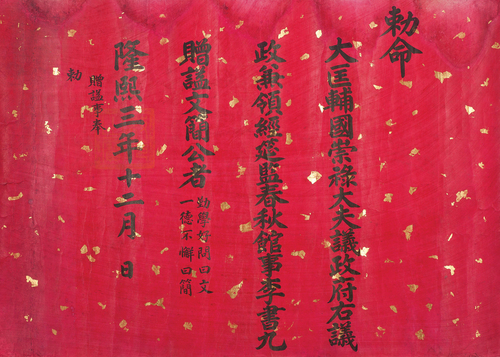 勅命
大匡輔國崇祿大夫議政府右議
政兼領經筵監春秋館事李書九
贈諡文簡公者
勤學好問曰文
一德不懈曰簡
隆熙三年十二月 日
贈諡事奉
勅